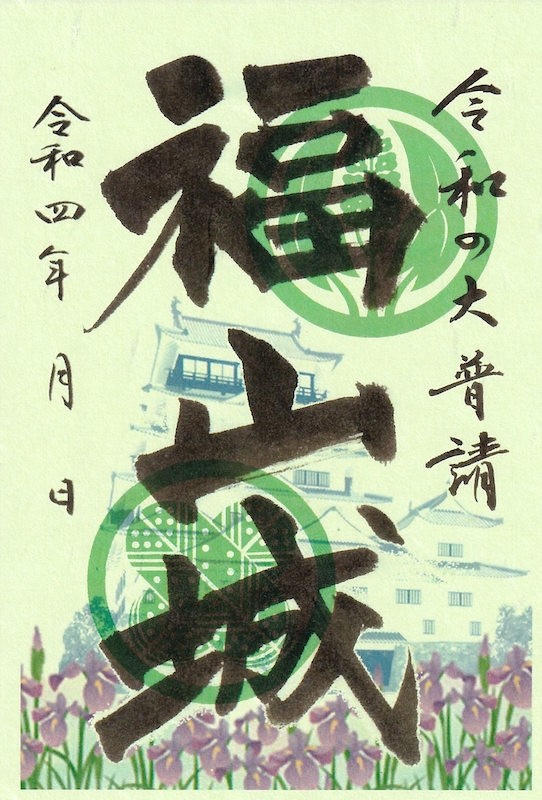 令和の大普請
福山城
令和四年 月 日